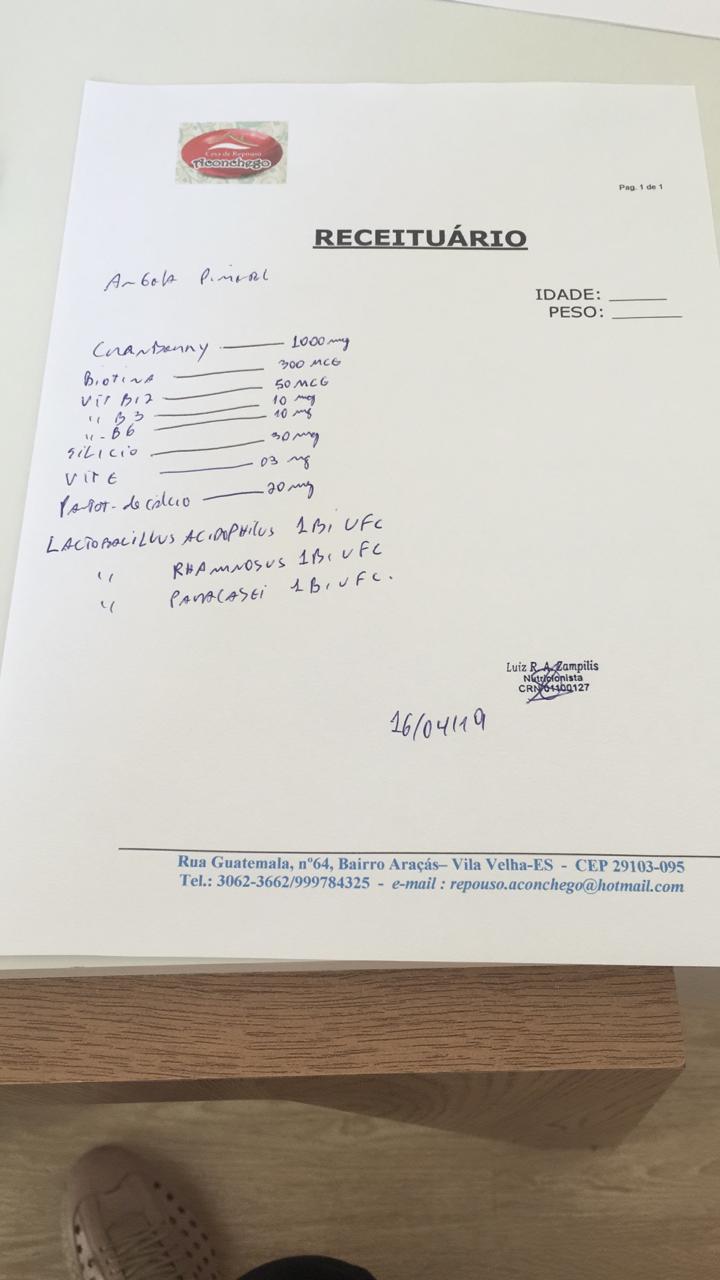 Casa de Repouso
Aconchego
Pag. 1 de 1
RECEITUÁRIO
IDADE: ______
PESO: ________
Cranberry 1000 mg
Biotina 300 MCG
Vit B12 50 MCG
" B3 10 mg
" - B6 10 mg
Silício 30 mg
Vit E 03 mg
Pantot. de cálcio 20 mg
LACTOBACILLUS ACIDOPHILUS 1 Bi UFC
" RHAMNOSUS 1 Bi UFC
" PARACASEI 1 Bi UFC.
Luiz R. A. Zampilis
Nutricionista
CRN 04100127
16/04/19
Rua Guatemala, nº64, Bairro Araçás– Vila Velha-ES - CEP 29103-095
Tel.: 3062-3662/999784325 - e-mail : repouso.aconchego@hotmail.com